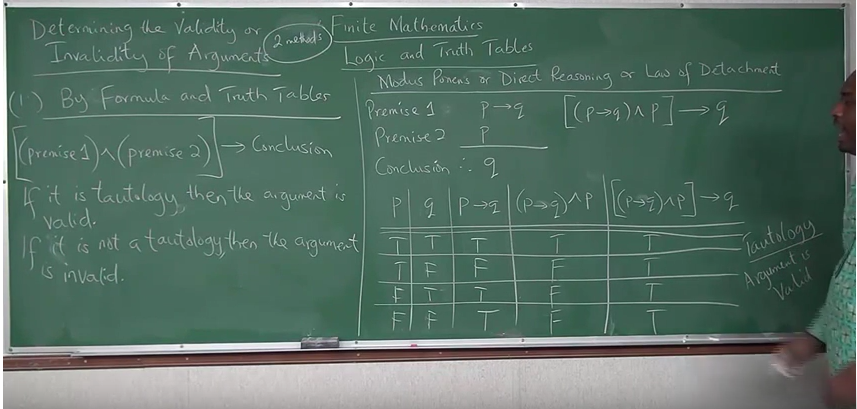 Determining the Validity or
Invalidity of Arguments
2 methods
(1) By Formula and Truth Tables
[(premise 1) ∧ (premise 2)] → Conclusion
If it is tautology, then the argument is
valid.
If it is not a tautology, then the argument
is invalid.
Finite Mathematics
Logic and Truth Tables
Modus Ponens or Direct Reasoning or Law of Detachment
Premise 1 p→q [(p→q) ∧ p] → q
Premise 2 p
Conclusion ∴ q
p q p→q (p→q) ∧ p [(p→q) ∧ p] → q
T T T T T
T F F F T
F T T F T
F F T F T
Tautology
Argument is
Valid